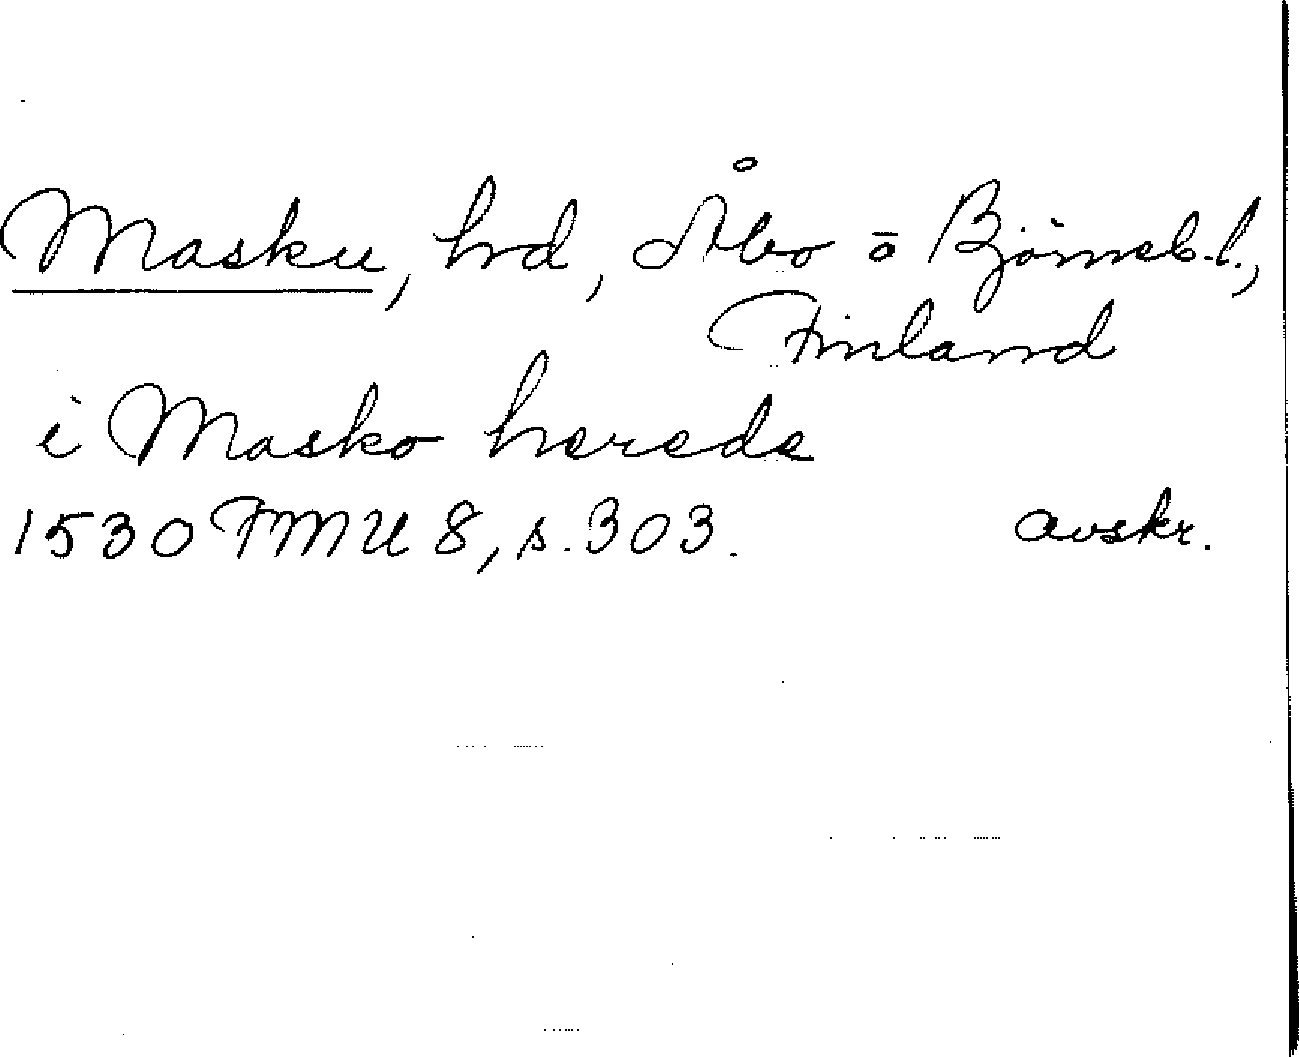 Masku, hd, Åbo o Björneb.l.,
Finland
i Masko herede
1530 FMU 8, s. 303. avskr.